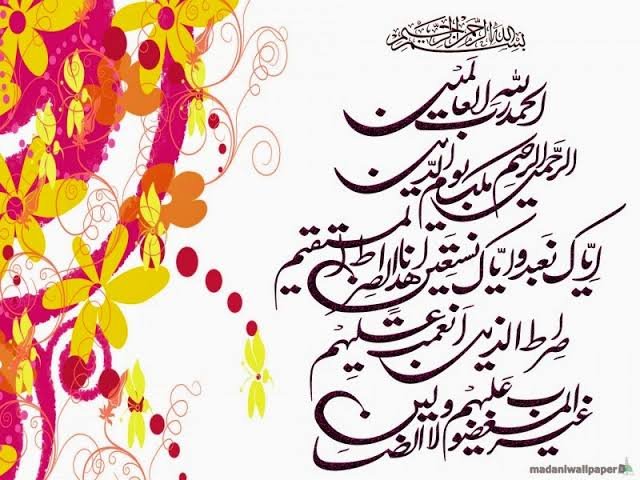 بسم الله الرحمن الرحيم
الحمد لله رب العالمين
الرحمن الرحيم ملك يوم الدين
إياك نعبد وإياك نستعين اهدنا الصراط المستقيم
صراط الذين أنعمت عليهم
غير المغضوب عليهم ولا الضالين
madaniwallpaper